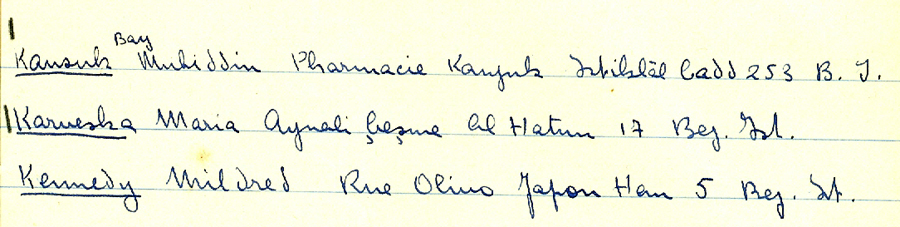 Bay
Kansuk Muhiddin Pharmacie Kanzuk Istiklâl Cadd 253 B. I.
Karweska Maria Aynali Çeşme Gl Hatun 17 Bey. Ist.
Kennedy Mildred Rue Olivo Japon Han 5 Bey. Ist.